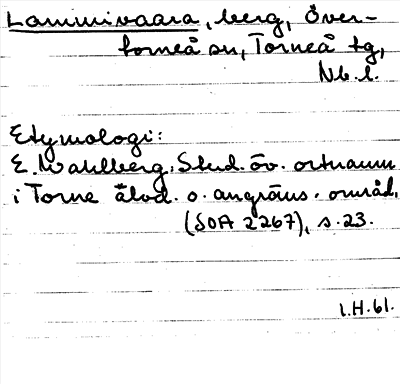 Lammivaara, berg, Över-
torneå sn, Torneå tg,
Nb. l.
Etymologi:
E. Wahlberg, Stud. öv. ortnamn
i Torne älvd. o. angräns. områd.
(SOA 2267), s. 23.
I.H. 61.